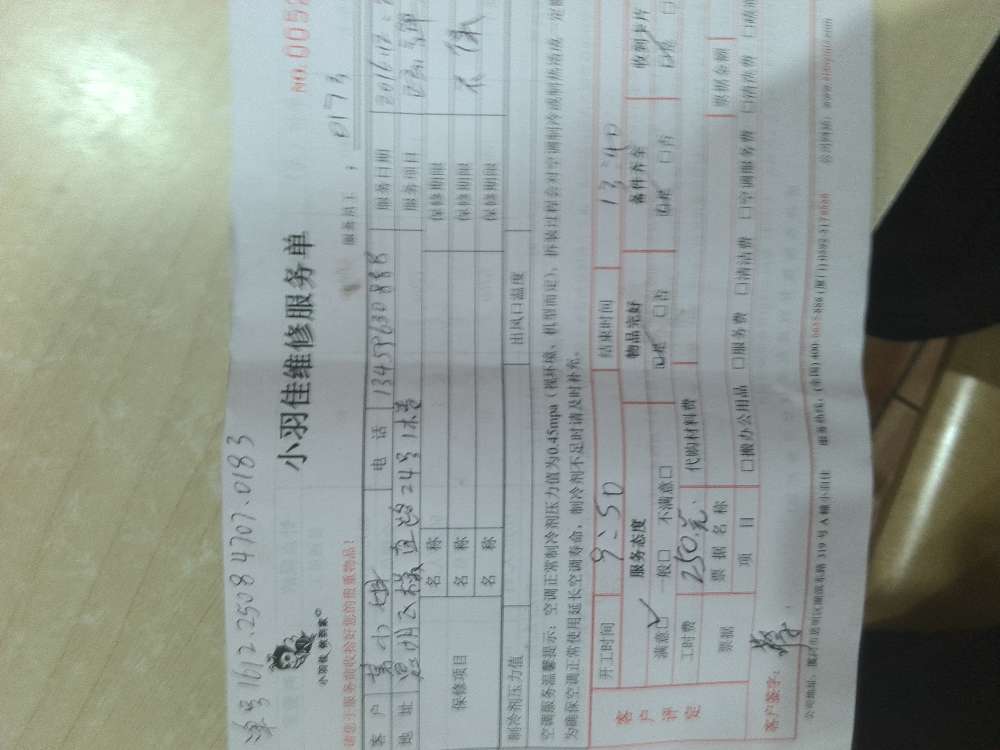 单号1612.25084707.0183
NO.0052
小羽佳 到到家
小羽佳维修服务单
请您于服务前收拾好您的贵重物品!
服务员工: 0173
客户 电话 13459630888 服务日期 2016.12.
地址 思明区 24号 服务项目
保修项目 名称 保修期限
名称 保修期限 不保
名称 保修期限
制冷剂压力值 出风口温度
空调服务温馨提示:空调正常制冷剂压力值为0.45mpa(视环境、机型而定),拆装过程会对空调制冷或制热造成一定
为确保空调正常使用延长空调寿命,制冷剂不足时请及时补充。
开工时间 9:50 结束时间 13:40
客户评定 服务态度 物品完好 备件齐全 收到卡片
满意☑ 一般□ 不满意□ ☑是 □否 ☑是 □否 ☑是 □
工时费 250元. 代购材料费
票据 票据名称 票据金额
项目 □搬办公用品 □服务费 □清洁费 □空调服务费 □清洗费 □
客户签字:
公司地址:厦门市思明区湖滨东路319号A幢小羽佳 服务热线:(全国)400-6618-886 (厦门)0592-5178888 公司网站:www.xiaoyujia.com